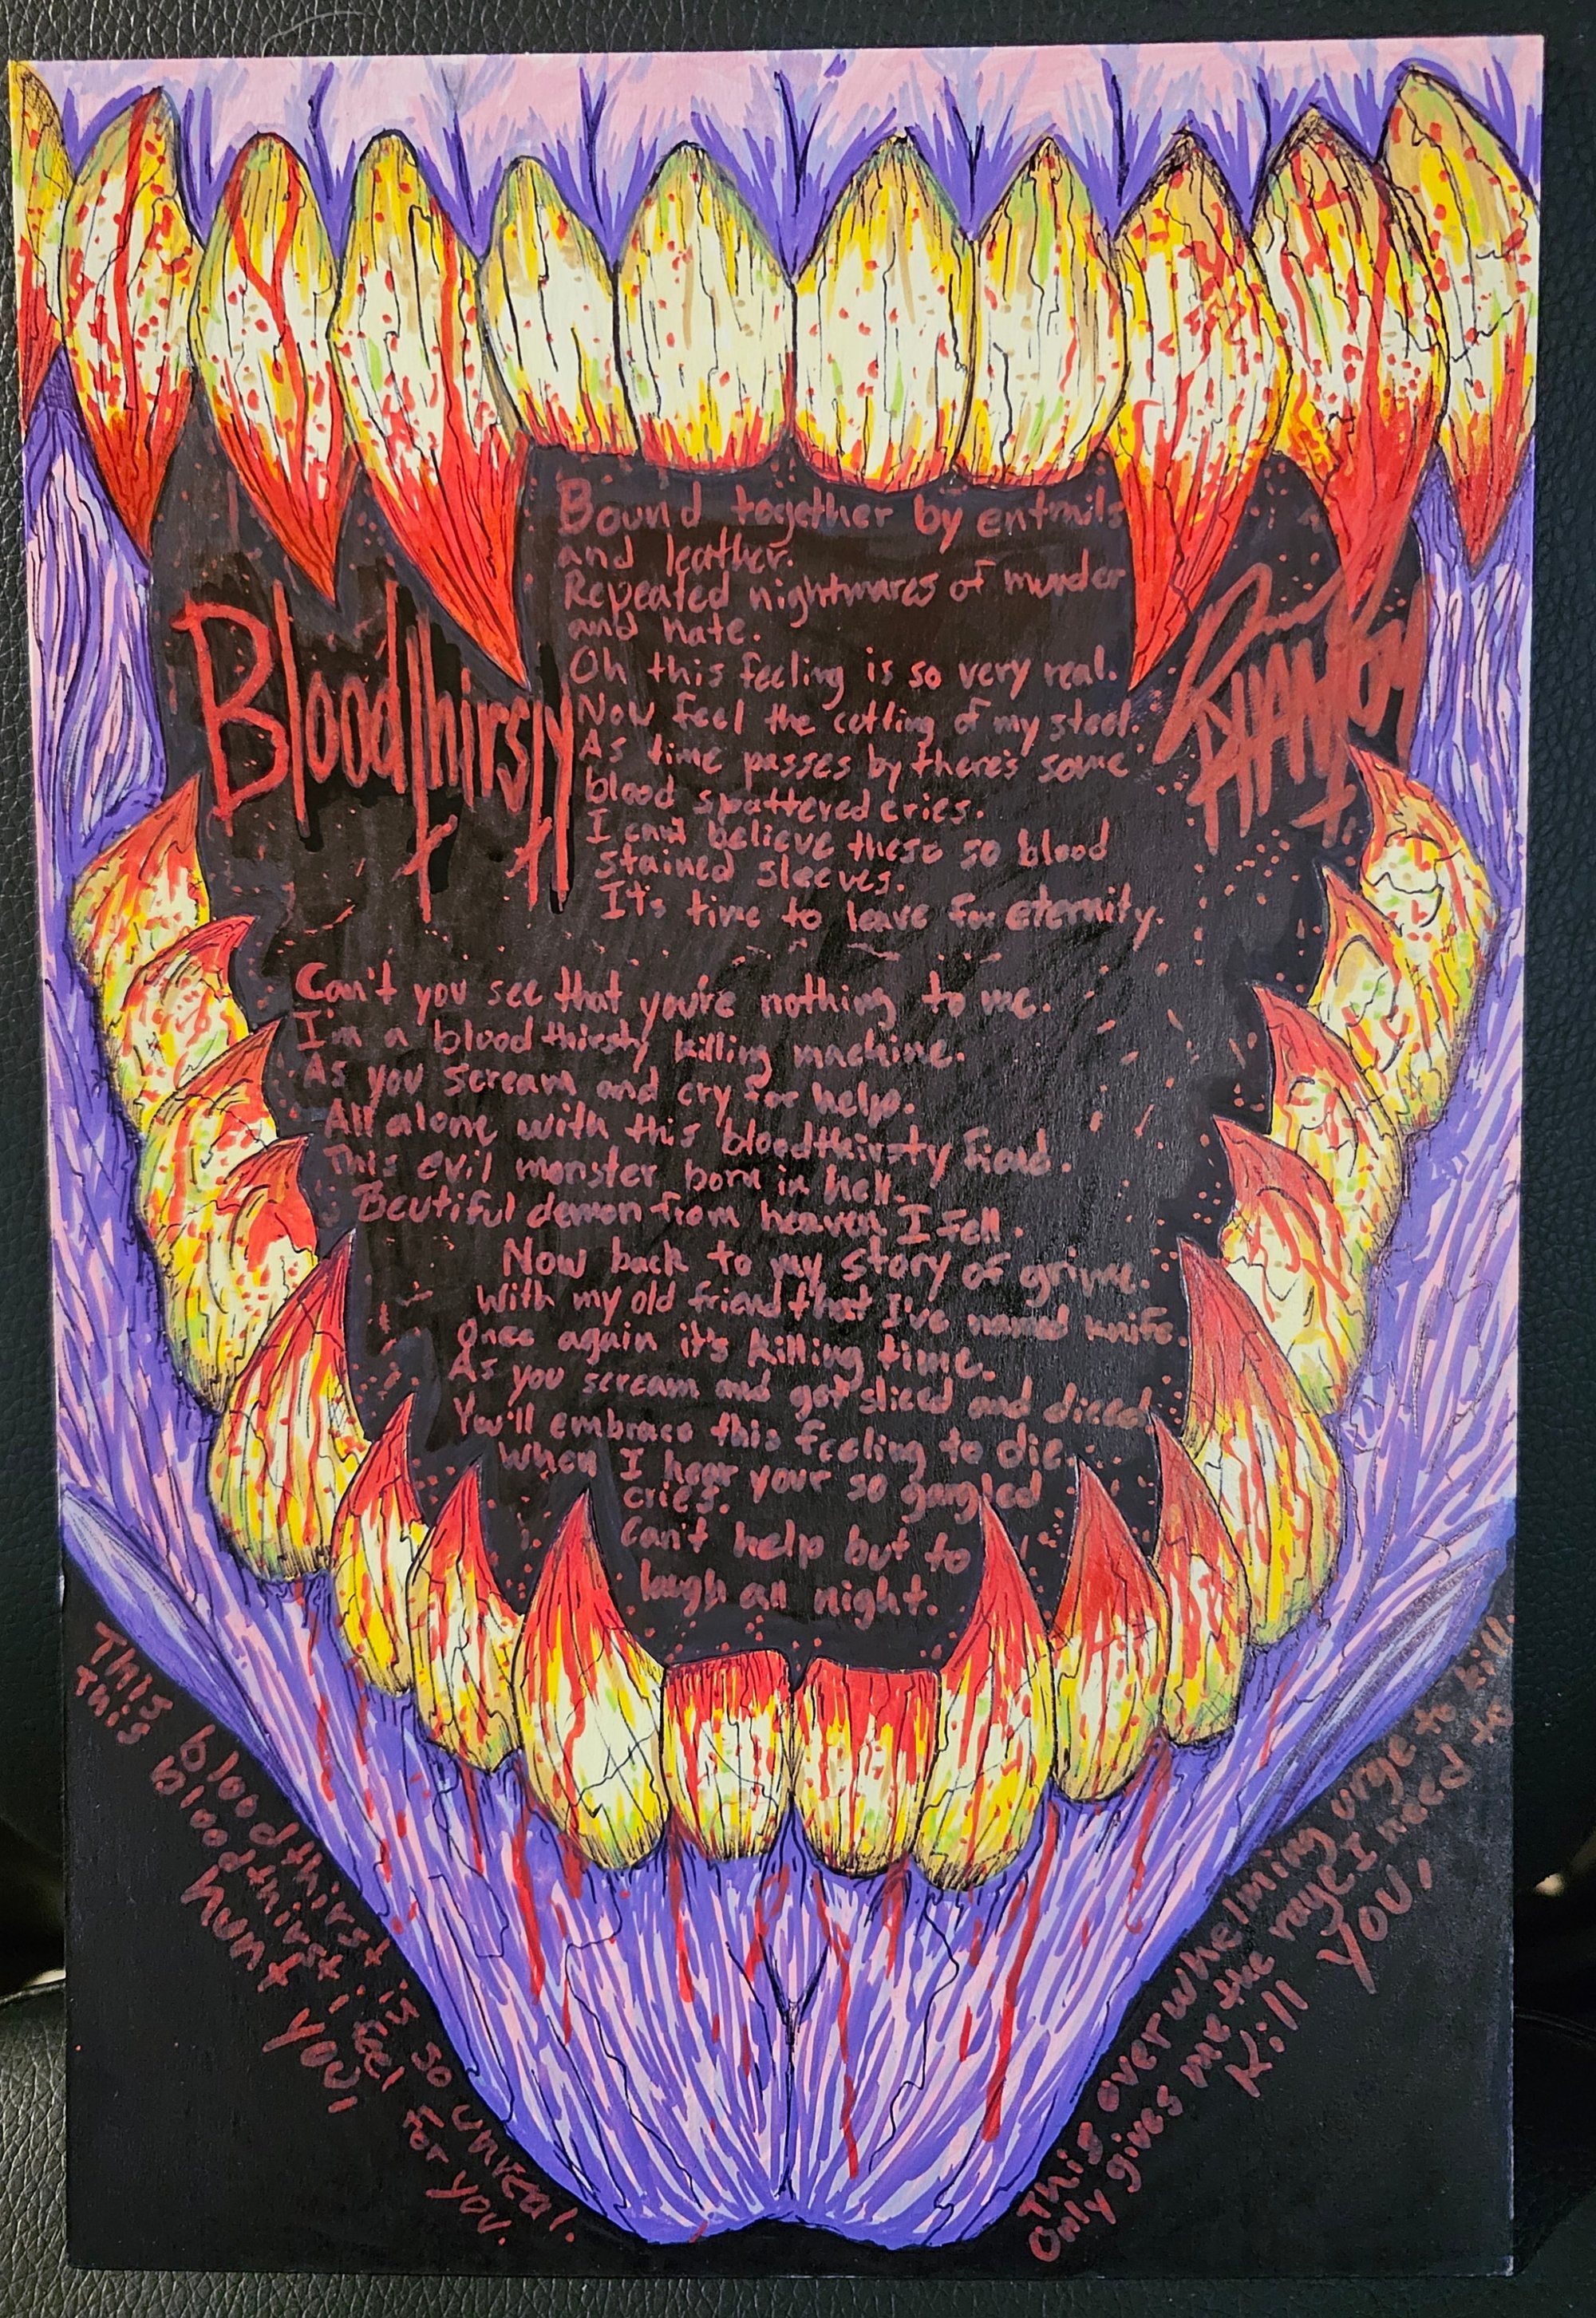 Bloodthirsty
Bound together by entrails
and leather.
Repeated nightmares of murder
and hate.
Oh this feeling is so very real.
Now feel the cutting of my steel.
As time passes by there's some
blood spattered cries.
I can't believe these so blood
stained sleeves.
It's time to leave for eternity.
Can't you see that you're nothing to me.
I'm a bloodthirsty killing machine.
As you scream and cry for help.
All alone with this bloodthirsty fiend.
This evil monster born in hell.
Beutiful demon from heaven I fell.
Now back to my story of grime.
With my old friend that I've named knife.
Once again it's killing time.
As you scream and get sliced and diced
You'll embrace this feeling to die.
When I hear your so gargled
cries.
Can't help but to
laugh all night.
This bloodthirst is so unreal.
this bloodthirst I feel for you.
hunt you!
This overwhelming urge to kill.
Only gives me the rage I need to
Kill you!